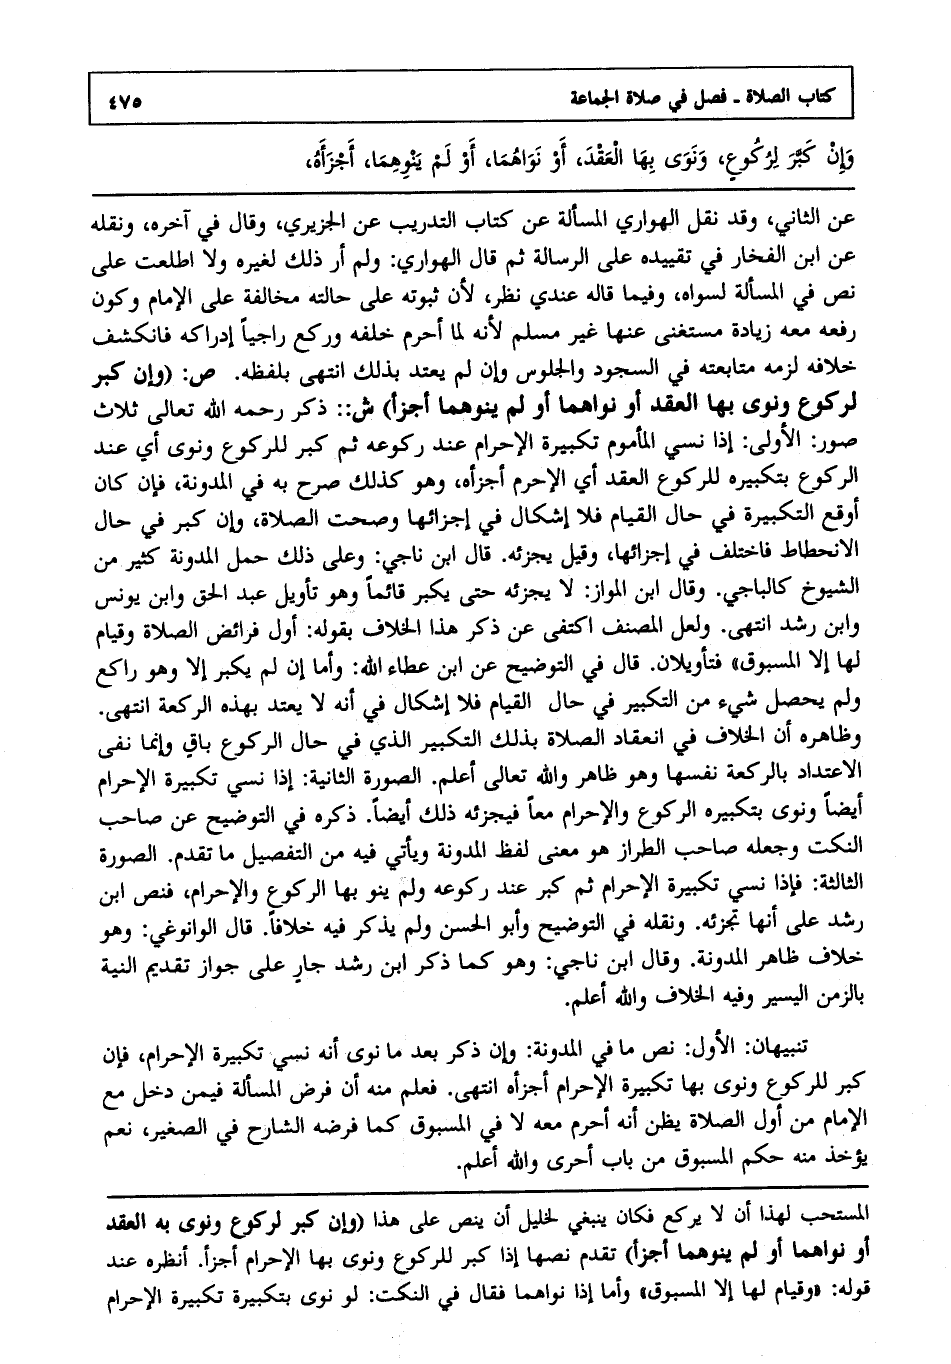 كتاب الصلاة ـ فصل في صلاة الجماعة ٤٧٥
وَإِنْ كَبَّرَ لِرُكُوعٍ، وَنَوَى بِهَا الْعَقْدَ، أَوْ نَوَاهُمَا، أَوْ لَمْ يَنْوِهِمَا، أَجْزَأَهُ،
عن الثاني، وقد نقل الهواري المسألة عن كتاب التدريب عن الجزيري، وقال في آخره، ونقله
عن ابن الفخار في تقييده على الرسالة ثم قال الهواري: ولم أر ذلك لغيره ولا اطلعت على
نص في المسألة لسواه، وفيما قاله عندي نظر، لأن ثبوته على حالته مخالفة على الإمام وكون
رفعه معه زيادة مستغنى عنها غير مسلم لأنه لما أحرم خلفه وركع راجياً إدراكه فانكشف
خلافه لزمه متابعته في السجود والجلوس وإن لم يعتد بذلك انتهى بلفظه. ص: (وإن كبر
لركوع ونوى بها العقد أو نواهما أو لم ينوهما أجزأ) ش:: ذكر رحمه الله تعالى ثلاث
صور: الأولى: إذا نسي المأموم تكبيرة الإحرام عند ركوعه ثم كبر للركوع ونوى أي عند
الركوع بتكبيره للركوع العقد أي الإحرم أجزأه، وهو كذلك صرح به في المدونة، فإن كان
أوقع التكبيرة في حال القيام فلا إشكال في إجزائها وصحت الصلاة، وإن كبر في حال
الانحطاط فاختلف في إجزائها، وقيل يجزئه. قال ابن ناجي: وعلى ذلك حمل المدونة كثير من
الشيوخ كالباجي. وقال ابن المواز: لا يجزئه حتى يكبر قائماً وهو تأويل عبد الحق وابن يونس
وابن رشد انتهى. ولعل المصنف اكتفى عن ذكر هذا الخلاف بقوله: أول فرائض الصلاة وقيام
لها إلا المسبوق» فتأويلان. قال في التوضيح عن ابن عطاء الله: وأما إن لم يكبر إلا وهو راكع
ولم يحصل شيء من التكبير في حال القيام فلا إشكال في أنه لا يعتد بهذه الركعة انتهى.
وظاهره أن الخلاف في انعقاد الصلاة بذلك التكبير الذي في حال الركوع باقٍ وإنما نفى
الاعتداد بالركعة نفسها وهو ظاهر والله تعالى أعلم. الصورة الثانية: إذا نسي تكبيرة الإحرام
أيضاً ونوى بتكبيره الركوع والإحرام معاً فيجزئه ذلك أيضاً. ذكره في التوضيح عن صاحب
النكت وجعله صاحب الطراز هو معنى لفظ المدونة ويأتي فيه من التفصيل ما تقدم. الصورة
الثالثة: فإذا نسي تكبيرة الإحرام ثم كبر عند ركوعه ولم ينو بها الركوع والإحرام، فنص ابن
رشد على أنها تجزئه. ونقله في التوضيح وأبو الحسن ولم يذكر فيه خلافاً. قال الوانوغي: وهو
خلاف ظاهر المدونة. وقال ابن ناجي: وهو كما ذكر ابن رشد جارٍ على جواز تقديم النية
بالزمن اليسير وفيه الخلاف والله أعلم.
تنبيهان: الأول: نص ما في المدونة: وإن ذكر بعد ما نوى أنه نسي تكبيرة الإحرام، فإن
كبر للركوع ونوى بها تكبيرة الإحرام أجزأه انتهى. فعلم منه أن فرض المسألة فيمن دخل مع
الإمام من أول الصلاة يظن أنه أحرم معه لا في المسبوق كما فرضه الشارح في الصغير، نعم
يؤخذ منه حكم المسبوق من باب أحرى والله أعلم.
المستحب لهذا أن لا يركع فكان ينبغي لخليل أن ينص على هذا (وإن كبر لركوع ونوى به العقد
أو نواهما أو لم ينوهما أجزأ) تقدم نصها إذا كبر للركوع ونوى بها الإحرام أجزأ. أنظره عند
قوله: «وقيام لها إلا المسبوق» وأما إذا نواهما فقال في النكت: لو نوى بتكبيرة تكبيرة الإحرام